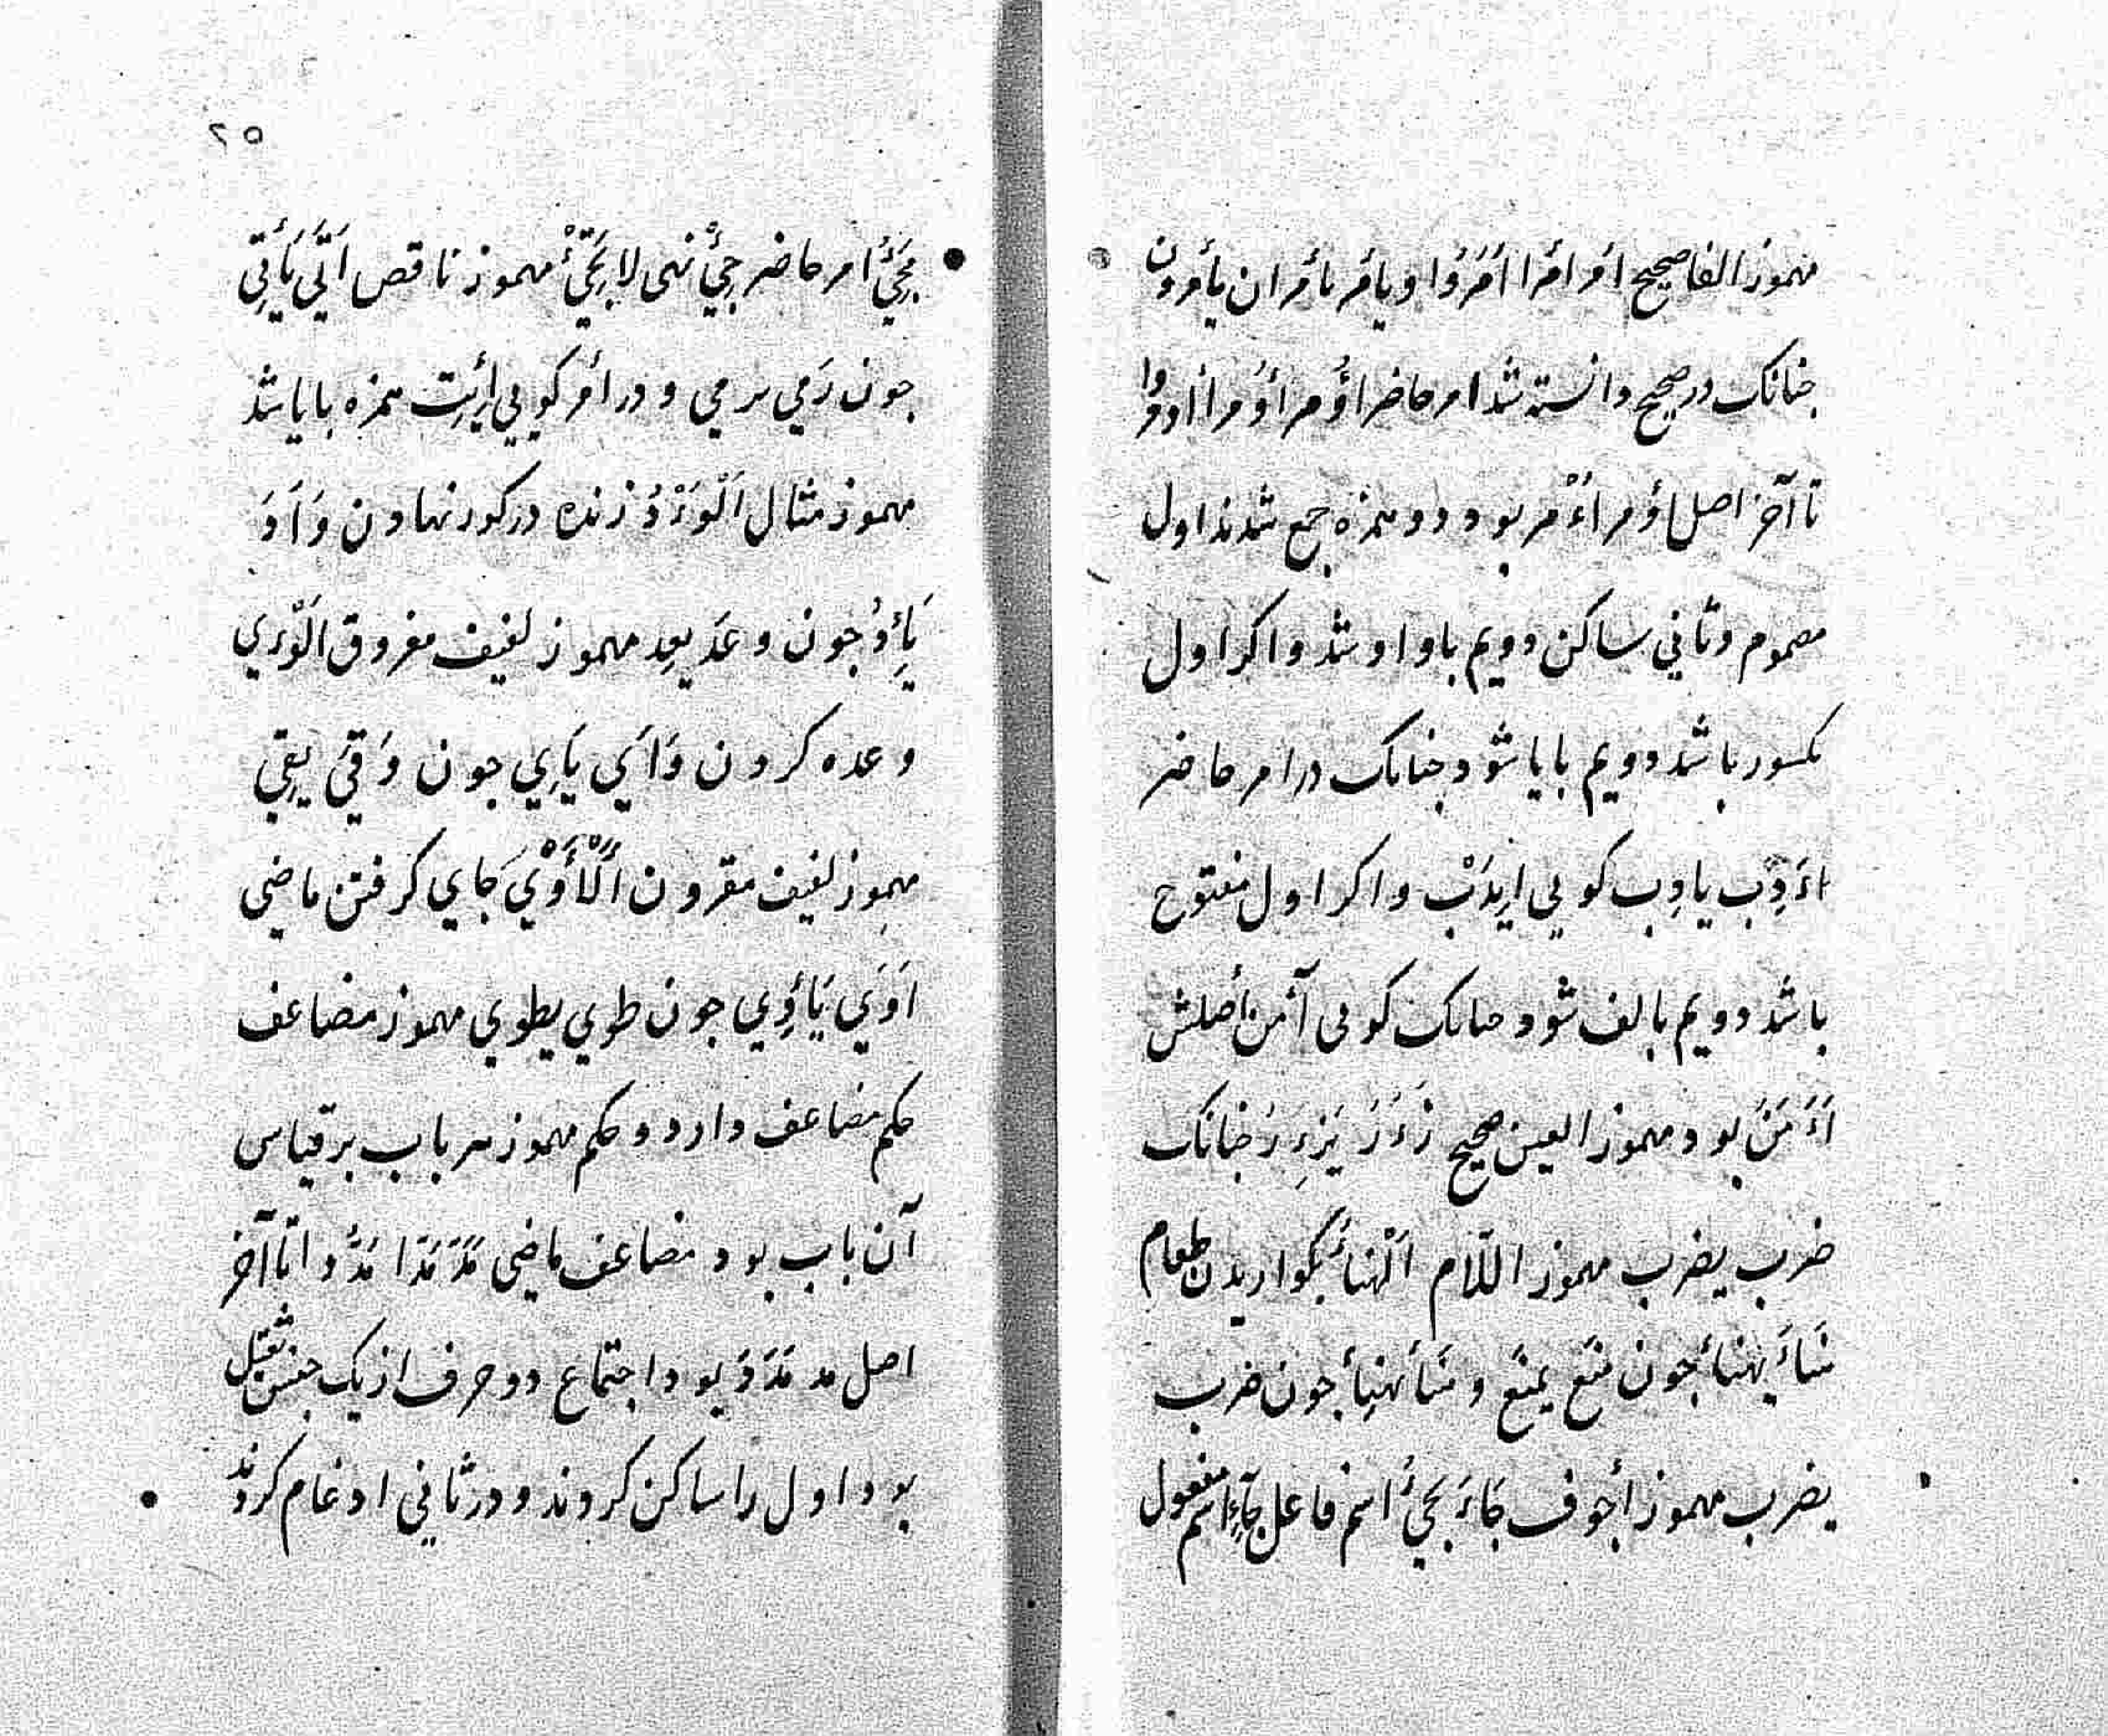 مهموز الفا صحیح امر امرا امروا و یأمر یأمران یأمرون
جنانک در صحیح دانسته شد امر حاضر اؤمر اؤمرا اومروا
تا آخر اصل اؤمر اءْمر بود دو همزه جمع شدند اول
مضموم و ثاني ساکن دویم با واو شد و اکر اول
مکسور باشد دویم با یا شود جنانک در امر حاضر
ادب یادب کویی ایدب و اکر اول مفتوح
باشد دویم بالف شود جنانک کویی آمن أصلش
اَءْمَنَ بود مهموز العین صحیح زَءَرَ یَزءِرُ جنانک
ضرب یضرب مهموز اللّام اَلْهَنأ بکواریدن طعام
هَنَاَ یهنأ جون منَع یمنَع و هَنَأ یهنِأ جون ضرب
یضرب مهموز أجوف جَاءَ یَجِئُ اسم فاعل جآءٍ اسم مفعول
٢٥
مَجِئٌ امر حاضر جِئْ نهی لا تَجِئْ مهموز ناقص اَتَی یَأتِي
جون رَمي یرمي و در أمر کویی اِیْت همزه با یا شد
مهموز مثال اَلْوَءْدُ زنده در کور نهادن وَاَدَ
یَاِدُ جون وعَد یعِد مهموز لفیف مفروق اَلْوَءْي
وعده کردن وَاَي یَاِي جون وَقَي یَقِي
مهموز لفیف مقرون اَلْأَوْيُ جَاي کرفتن ماضی
اَوَي یَأوِي جون طوي یطوي مهموز مضاعف
حکم مضاعف دارد و حکم مهموز هر باب بر قیاس
آن باب بود مضاعف ماضی مَدَّ مَدَّا مَدُّوا تا آخر
اصل مد مَدَدَ بود اجتماع دو حرف از یک جنس ثقیل
بود اول را ساکن کردند و در ثاني ادغام کردند